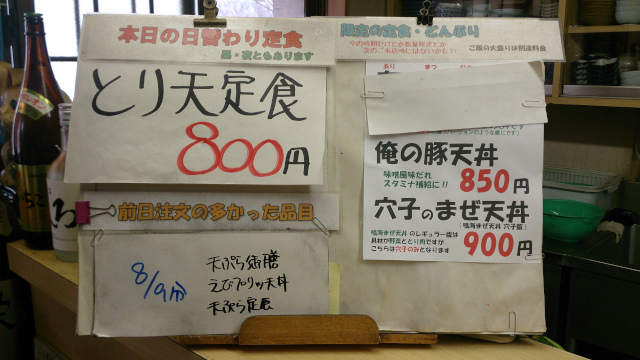 本日の日替わり定食
昼・夜ともあります
とり天定食
800円
前日注文の多かった品目
8/9分
天ぷら御膳
えびプリッツ天丼
天ぷら定食
限定の定食・どんぶり
ご飯の大盛りは別途料金
俺の豚天丼
味噌風味だれ
スタミナ補給に!!
850円
穴子のまぜ天丼
(鳴海まぜ天丼 穴子版)
鳴海まぜ天丼 のレギュラー版は
具材が野菜ととり肉ですが
こちらは穴子のみとなります
900円